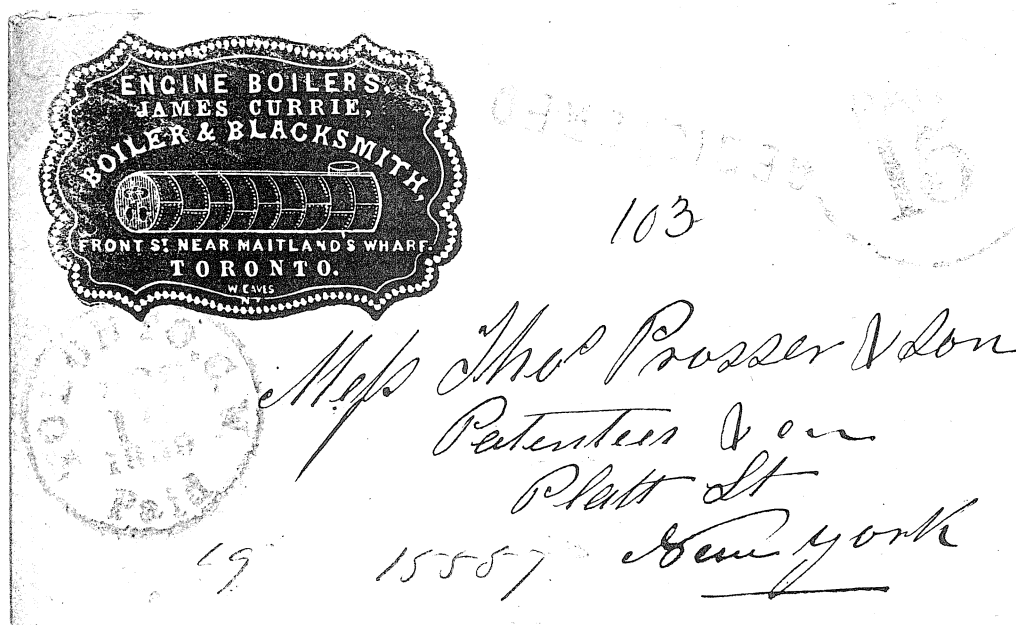 ENGINE BOILERS,
JAMES CURRIE,
BOILER & BLACKSMITH,
FRONT ST. NEAR MAITLAND'S WHARF.
TORONTO.
W. EAVES
N.Y.
REGISTERED
103
Mess Thos Prosser & Son
Patentees &
Platt St
New York
TORONTO. C. W
Paid
19
15557